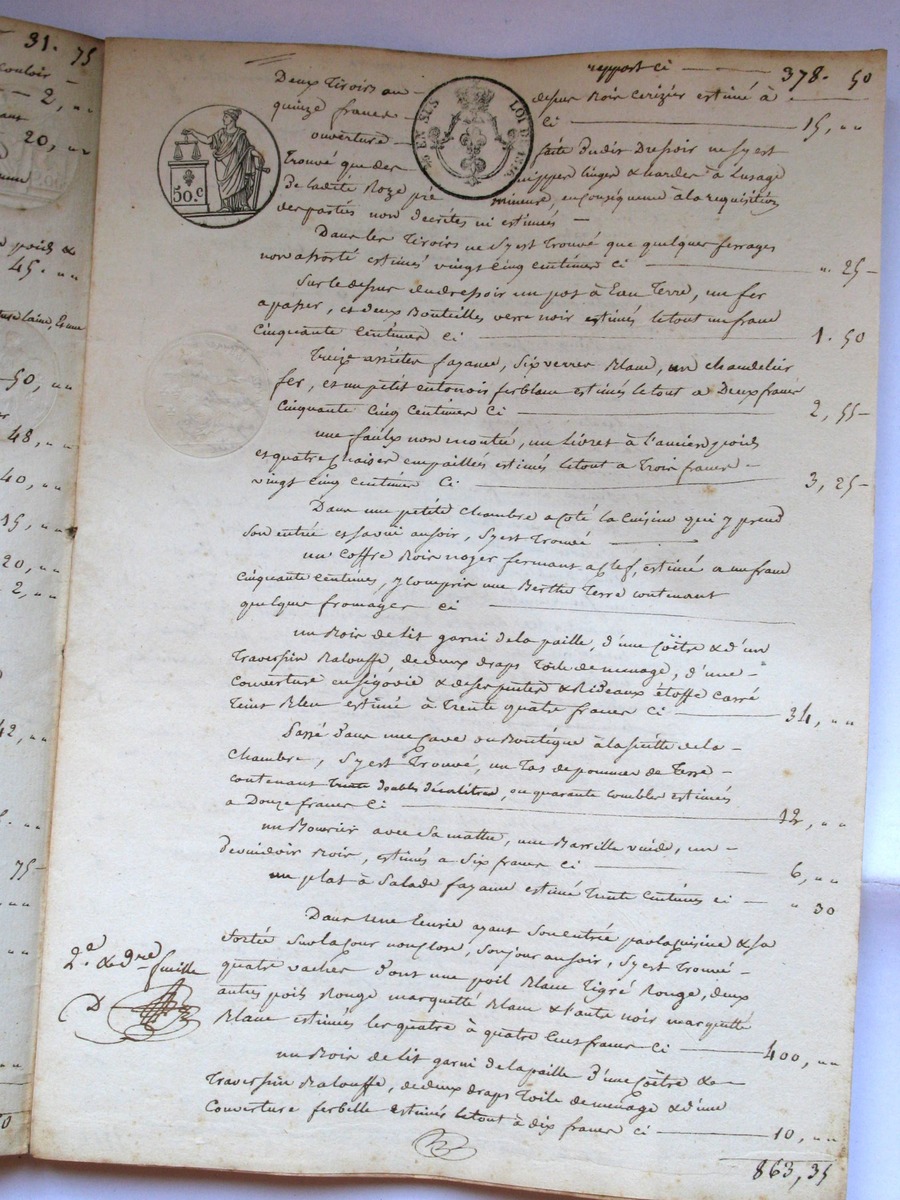 31. 75
couloir
2, "
20, "
poids &
45. "
50, "
48, "
40, "
15, "
20, "
2, "
42, "
75
rapport ci 378. 50
50.c
EN SUS LOI DE 1816
Deux Tiroirs au dessus Bois Cerizier estimé à
quinze francs ci 15, "
ouverture faite dudit Dressoir ne s'y est
Trouvé que des nippes linges & hardes à l'usage
De ladite Roze pré mineure, en conséquence à la requisition
des parties non décrites ni estimés
Dans les Tiroirs ne s'y est Trouvé que quelques ferrages
non assorté estimés vingt cinq centimes ci ". 25
Sur le dessus du dressoir un pot à Eau Terre, un fer
a passer, et deux Bouteilles verre noir estimés le tout un franc
Cinquante Centimes ci 1. 50
Treize assiettes fayance, six verres Blanc, un chandelier
fer, et un petit entonoir ferblanc estimés le tout a Deux francs
Cinquante Cinq Centimes ci 2, 55
une faulx non montée, un Livret à l'ancien poids
et quatre chaises empaillés estimés le tout a Trois francs
vingt cinq centimes ci 3, 25
Dans une petite chambre a coté la Cuisine qui y prend
son entrée et sa vüe au soir, s'y est trouvé
un coffre Bois noyer fermant a clef, estimé a un franc
Cinquante Centimes, y compris une Berthe Terre contenant
quelques fromages ci
un Bois de lit garni de la paille, d'une Coëtre & d'un
Traversin Balouffe, de deux draps Toile de menage, d'une
Couverture en ségovie & de serpentes & Rideaux étoffe carré
Teint Bleu estimé à Trente quatre francs ci 34, "
Passé dans une Cave ou Boutique à la suitte de la
Chambre, s'y est Trouvé, un Tas de pommes de Terre
contenant trente doubles décalitres, ou quarante combles estimés
a Douze francs ci 12, "
un Bourrier avec sa matte, une Barrille vuide, un
Devuidoir Bois, estimés a six francs ci 6, "
un plat à Salade fayance estimé Trente Centimes ci " 30
Dans une Ecurie ayant son entrée par la cuisine & sa
sortée sur la Cour non close, son jour au soir, s'y est Trouvé
quatre vaches dont une poil Blanc Tigré Rouge, deux
autres poils Rouge marquetté Blanc & l'autre noir marquetté
Blanc estimés les quatre à quatre Cent francs ci 400, "
un Bois de lit garni de la paille d'une Coëtre &
Traversin Balouffe, de deux draps Toile de menage & d'une
Couverture ferbelle estimés le tout à dix francs ci 10, "
863, 35
2.e & d.re feuille